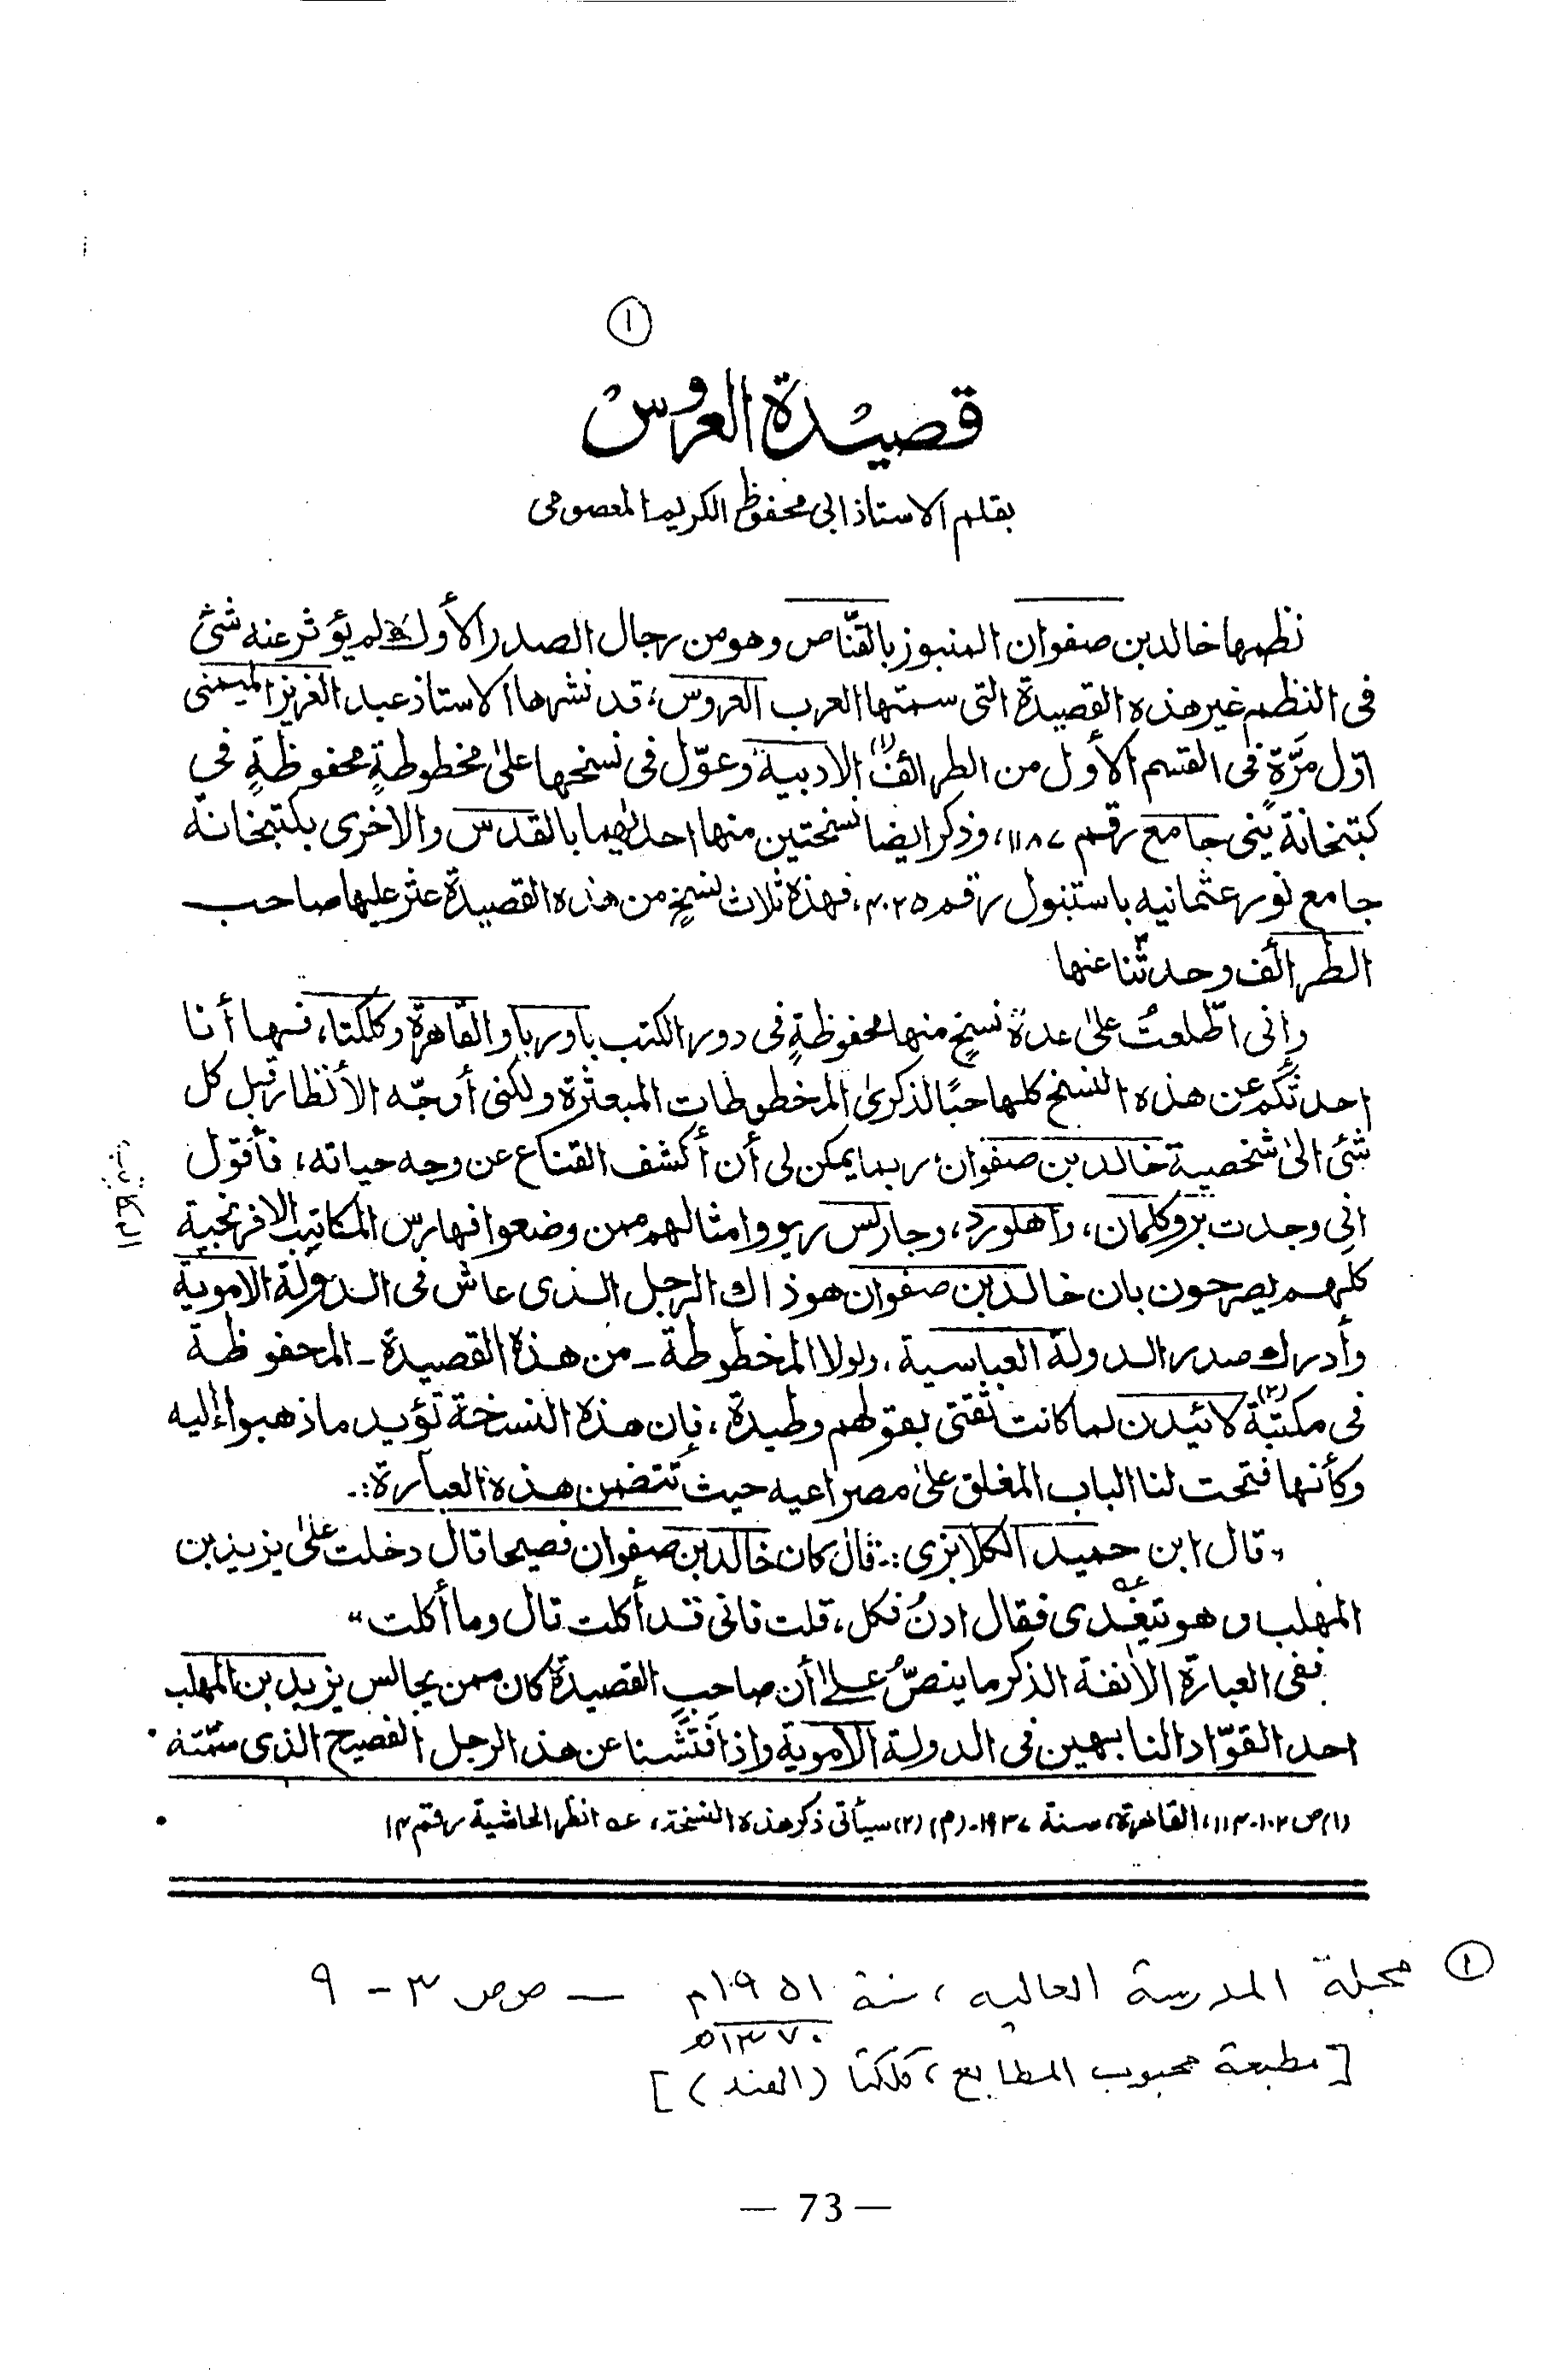 ١
قصيدة العروس
بقلم الاستاذ ابى محفوظ الكريم المعصومى
نظمها خالد بن صفوان المنبوز بالقنّاص وهو من رجال الصدر الأول ولم يؤثر عنه شئ
فى النظم غير هذه القصيدة التى سمتها العرب العروس، قد نشرها الاستاذ عبد العزيز الميمنى
اوّل مرَّةٍ فى القسم الأول من الطرائف(١) الادبية وعوّل فى نسخها على مخطوطةٍ محفوظةٍ في
كتبخانة ينى جامع رقم ١١٨٧، وذكر ايضا نسختين منها احدٰهما بالقدس والاخرى بكتبخانة
جامع نور عثمانيه باستنبول رقم ٤٠٢٥، فهذه ثلاث نسخٍ من هذه القصيدة عثر عليها صاحب
الطرائف وحدثنا عنها
وإنى اطّلعتُ علىٰ عدة نسخٍ منها محفوظةٍ فى دور الكتب باوربا والقاهرة وكلكتا، فها أنا
احدثكم عن هذه النسخ كلها حبًا لذكرى المخطوطات المبعثرة ولكنى أوجّه الأنظار قبل كل
شئ الىٰ شخصية خالد بن صفوان، ربما يمكن لى أن أكشف القناع عن وجه حياته، فأقول
انى وجدت بروكلمان، واهلورد، وجارلس ريو وامثالهم ممن وضعوا فهارس المكاتيب الافرنجية
المكاتب
كلهم يصرحون بان خالد بن صفوان هو ذاك الرجل الذى عاش فى الدولة الاموية
وأدرك صدر الدولة العباسية، ولولا المخطوطة ـ من هذه القصيدة ـ المحفوظة
فى مكتبة(٢) لائيدن لما كانت ثقتى بقولهم وطيدة، فإن هذه النسخة تؤيد ما ذهبوا إليه
وكأنها فتحت لنا الباب المغلق علىٰ مصراعيه حيث تتضمن هذه العبارة:۔
„قال ابن حميد الكلابزى:۔ قال كان خالد بن صفوان فصيحا قال دخلت علىٰ يزيد بن
المهلب وهو يتغدى عه فقال ادنُ فكل، قلت فانى قد أكلت قال وما أكلت“
ففى العبارة الآنفة الذكر ما ينصُّ علىٰ أن صاحب القصيدة كان ممن يجالس يزيد بن المهلب
احد القوّاد النابهين فى الدولة الاموية واذا فتَّشنا عن هذا الرجل الفصيح الذى سمّته
(١) ص ١٠٢-١١٣، القاهرة، سنة ١٩٣٧۔ (م) (٢) سيأتى ذكر هذه النسخة، عه انظر الحاشية رقم ١٣
١ مجلة المدرسة العاليه، سنة ١٩٥١م — صص ٣ - ٩
١٣٧٠ه
[مطبعة محبوب المطابع، كلكتا (الهند)]
— 73 —